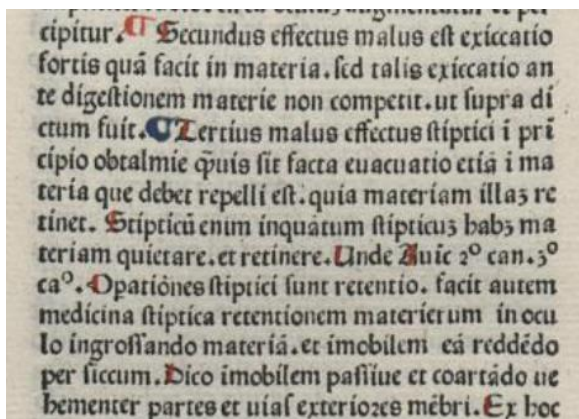 cipitur. ¶ Secundus effectus malus est exiccatio
fortis quã facit in materia. sed talis exiccatio an
te digestionem materie non competit. ut supra di
ctum fuit. ¶ Tertius malus effectus stiptici i pri
cipio obtalmie q̃uis sit facta euacuatio etiã i ma
teria que debet repelli est. quia materiam illaꝫ re
tinet. Stipticũ enim inquatum stipticuꝫ habꝫ ma
teriam quietare. et retinere. Unde Auic 2º can. 3º
caº. Opatiónes stiptici sunt retentio. facit autem
medicina stiptica retentionem materierum in ocu
lo ingrossando materiã. et imobilem eã reddẽdo
per siccum. Dico imobilem passiue et coartãdo ue
hementer partes et uias exteriores mẽbri. Ex hoc